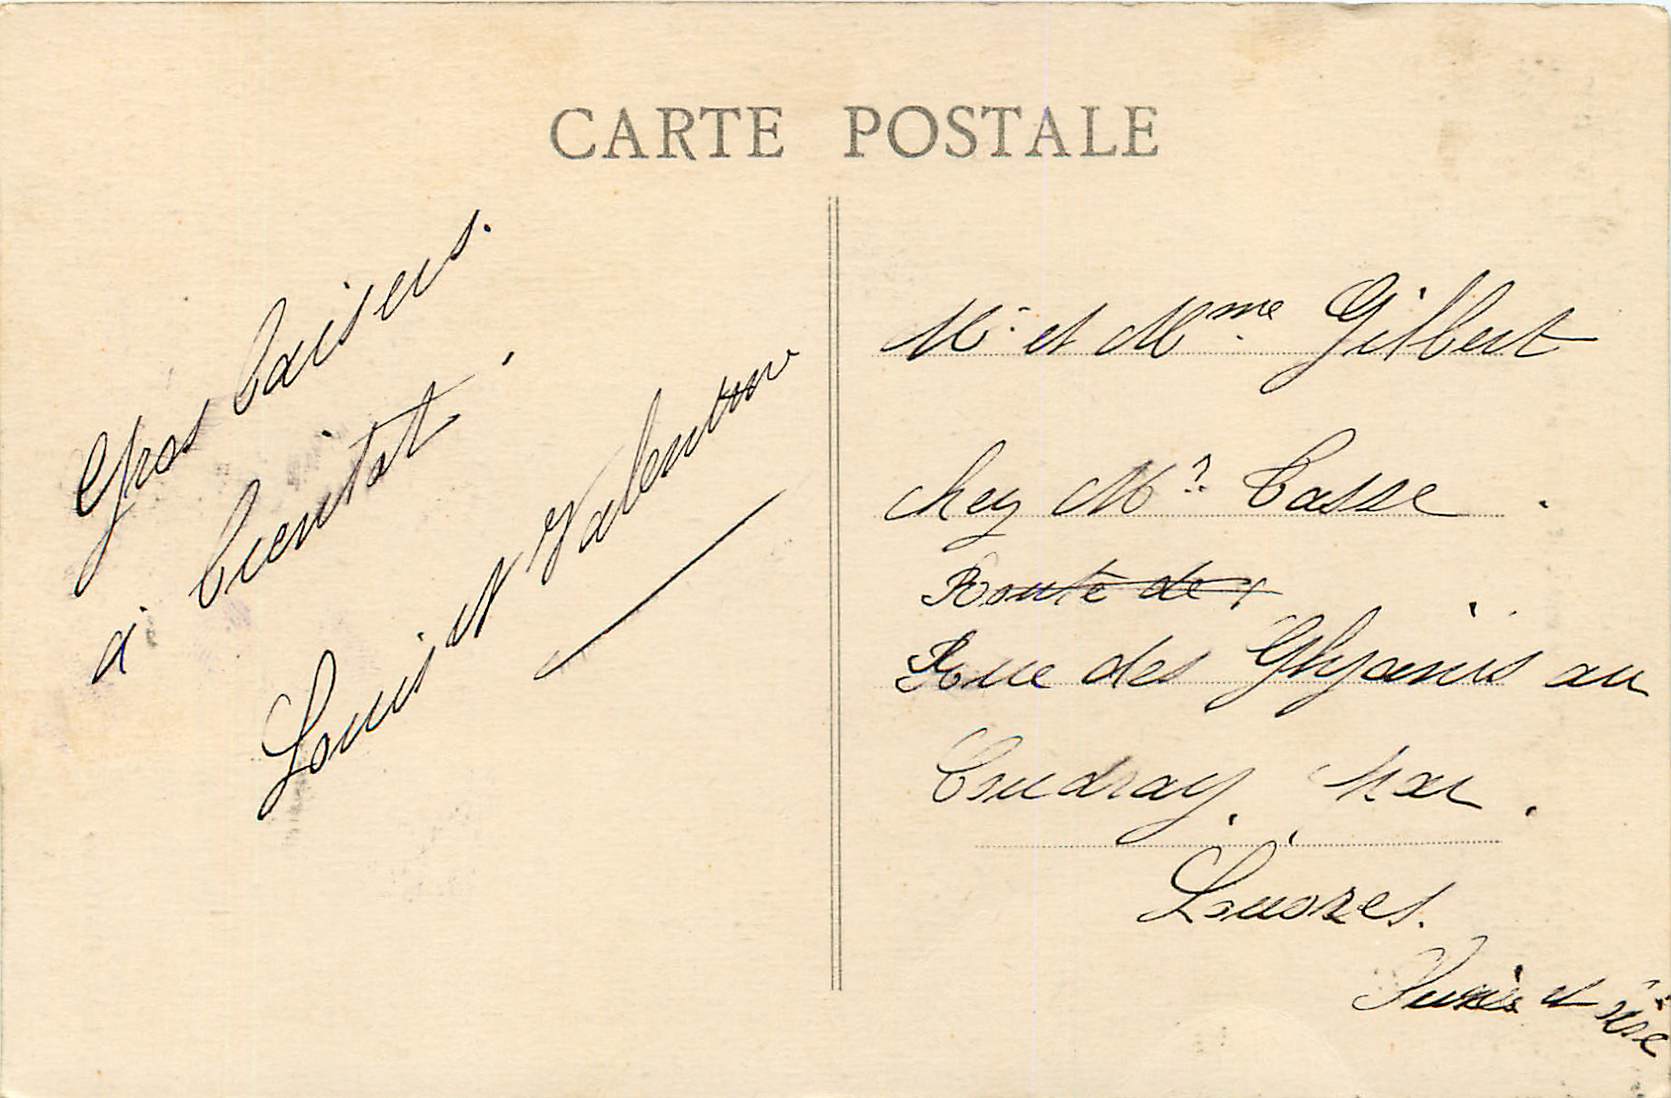 CARTE POSTALE
Gros baisers.
à bientot.
Louis et Valentine
Mr. et Mme. Gilbert
chez Mr. Tasse.
Route de
Rue des au
Coudray. par.
Luores.
et